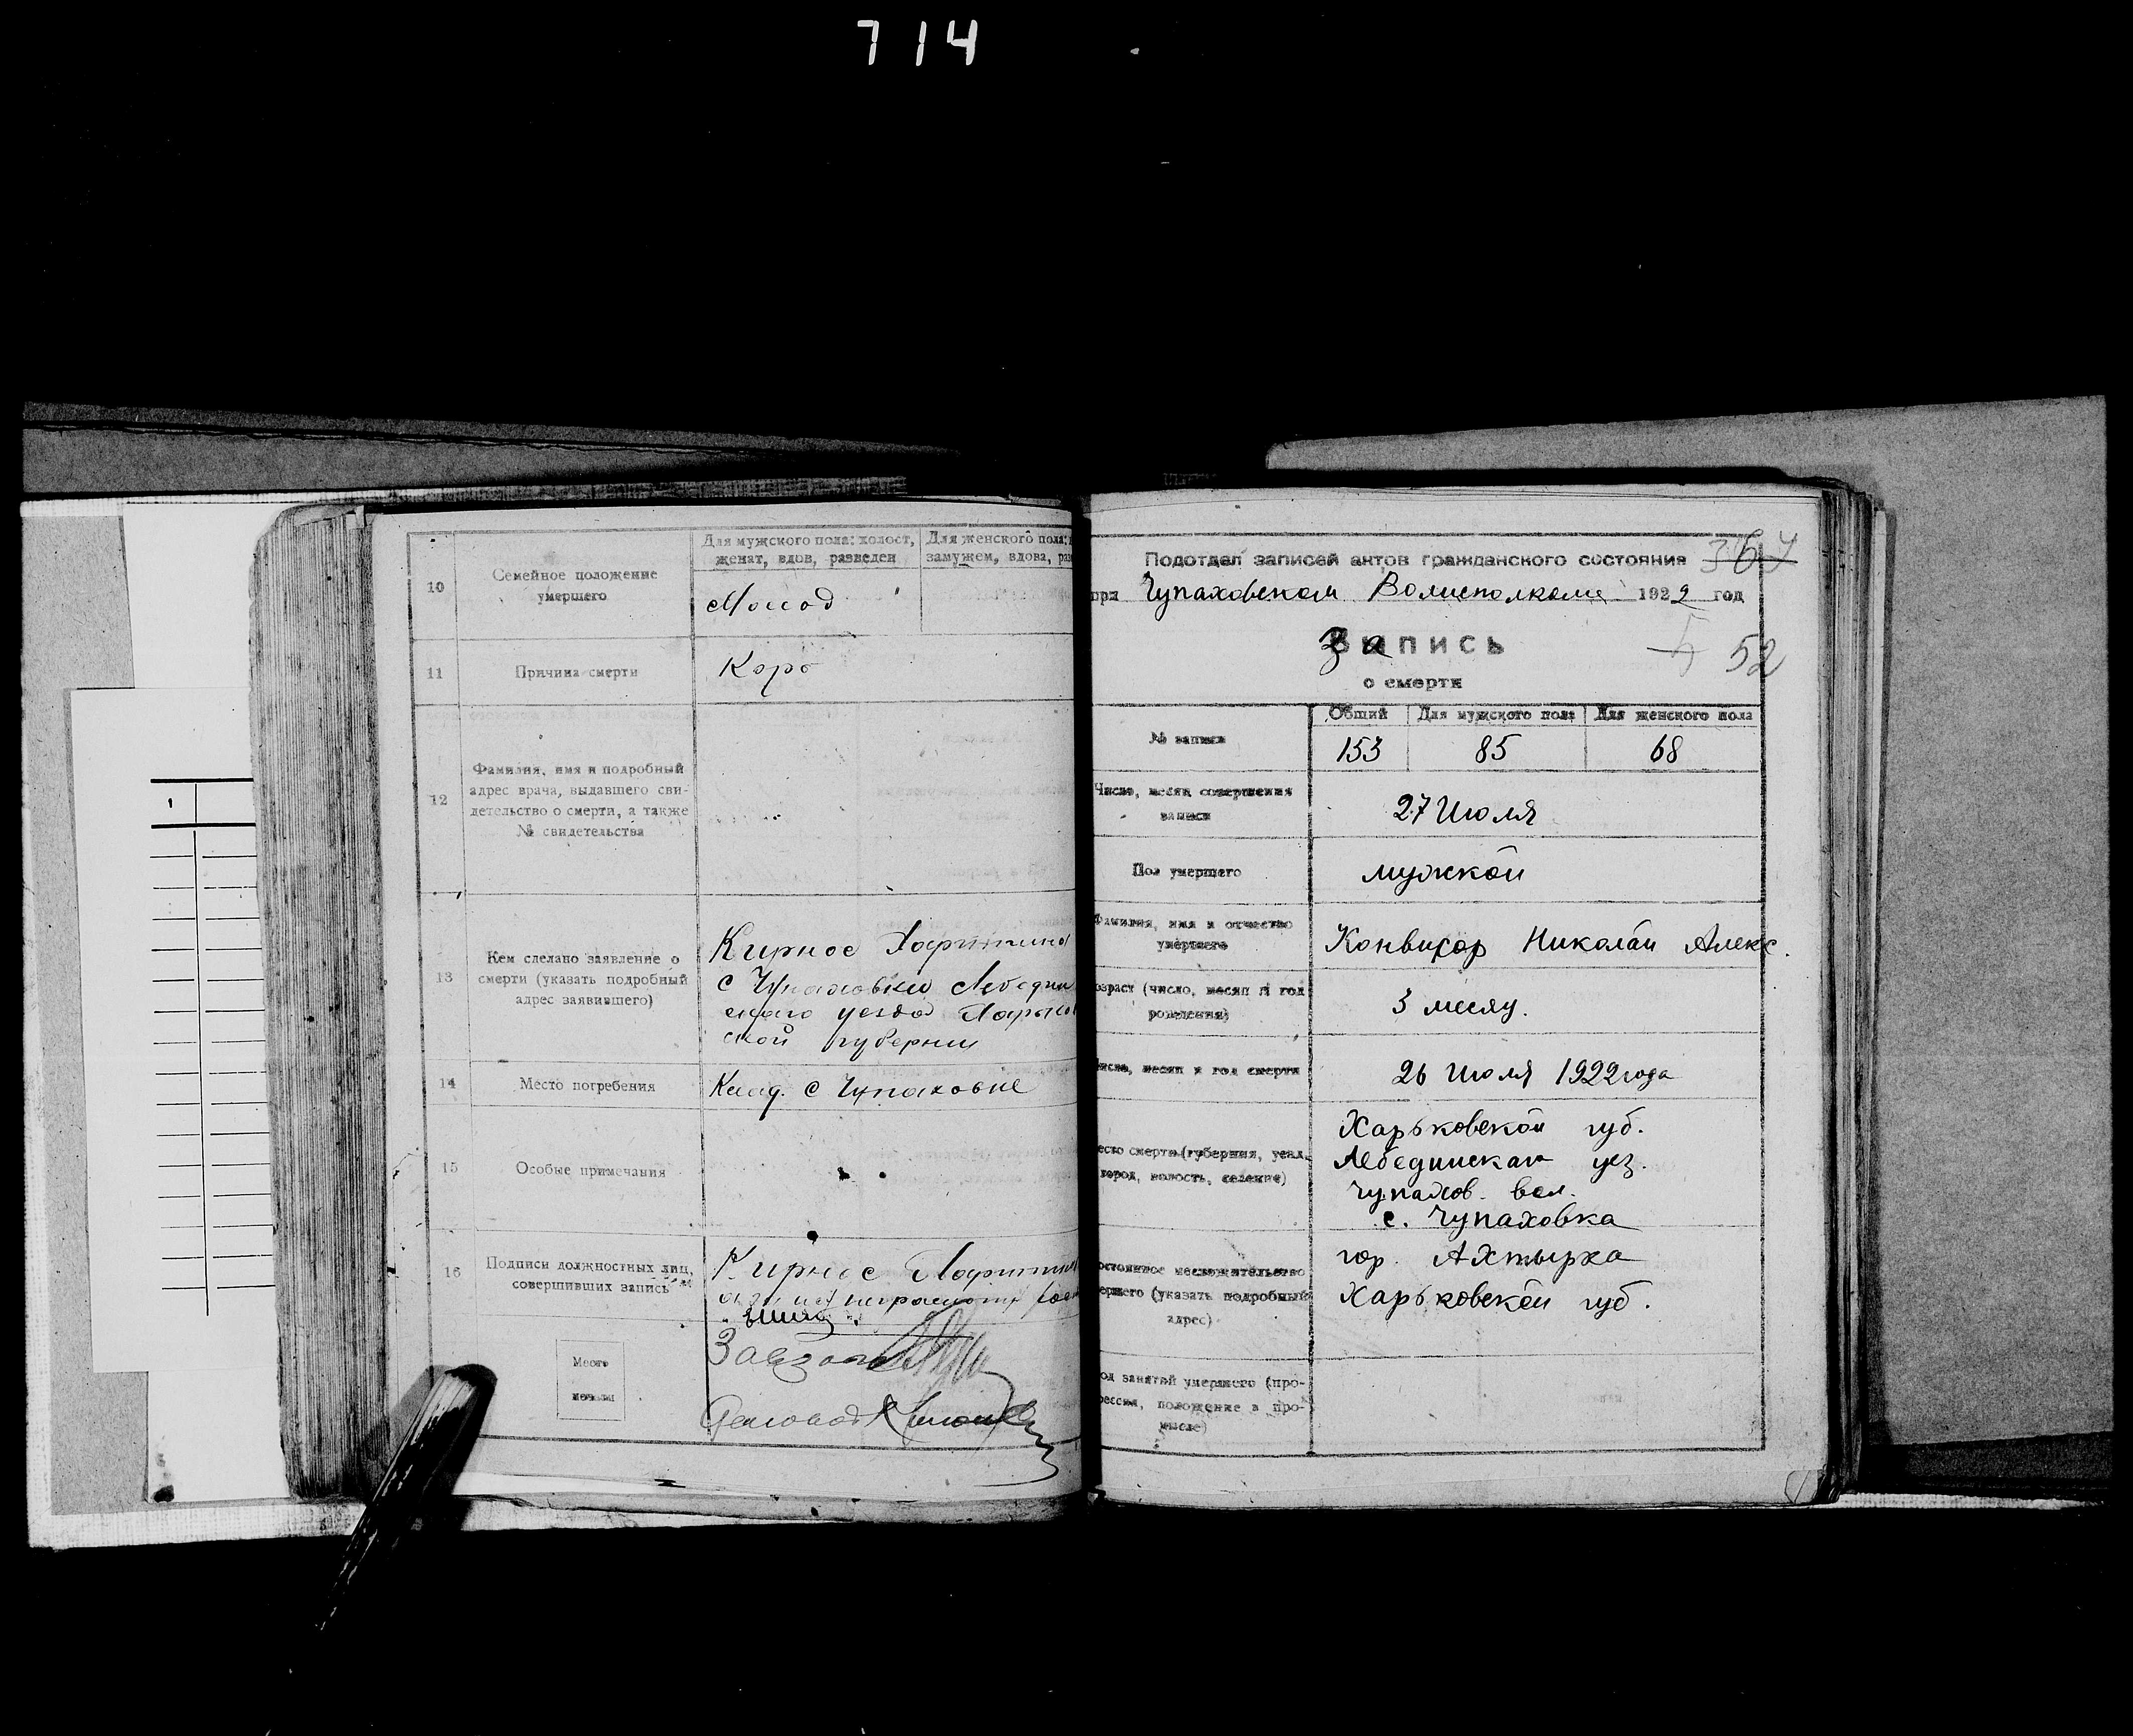 714
10
Семейное положение
умершего
Для мужского пола: холост,
женат, вдов, разведен
Для женского пола:
замужем, вдова, раз
Молод
11
Причина смерти
Коро
12
Фамилия, имя и подробный
адрес врача, выдавшего сви-
детельство о смерти, а также
№ свидетельства
13
Кем сделано заявление о
смерти (указать подробный
адрес заявившего)
Кирнос Харитина
с Чупаховки Лебедин
ского уезда Харьков
ской губернии
14
Место погребения
Клад. с Чупаховке
15
Особые примечания
16
Подписи должностных лиц,
совершивших запись
Кирнос Харитин
Место
печати
Подотдел записей актов гражданского состояния
367
при Чупаховском Волисполкоме 1922 год
Запись
5 52
о смерти
№ записи
Общий
Для мужского пола
Для женского пола
153
85
68
Число, месяц совершения
записи
27 Июля
Пол умершего
мужской
Фамилия, имя и отчество
умершего
Николай Алекс.
озраст (число, месяц и год
рождения)
3 месяц.
исло, месяц и год смерти
26 Июля 1922 года
есто смерти (губерния, уезд,
город, волость, селение)
Харьковской губ.
Лебединская уез.
Чупахов. вол.
с. Чупаховка
остоянное местожительство
ершего (указать подробный
адрес)
гор. Ахтырка
Харьковской губ.
од занятий умершего (про-
фессия, положение в про-
мысле)